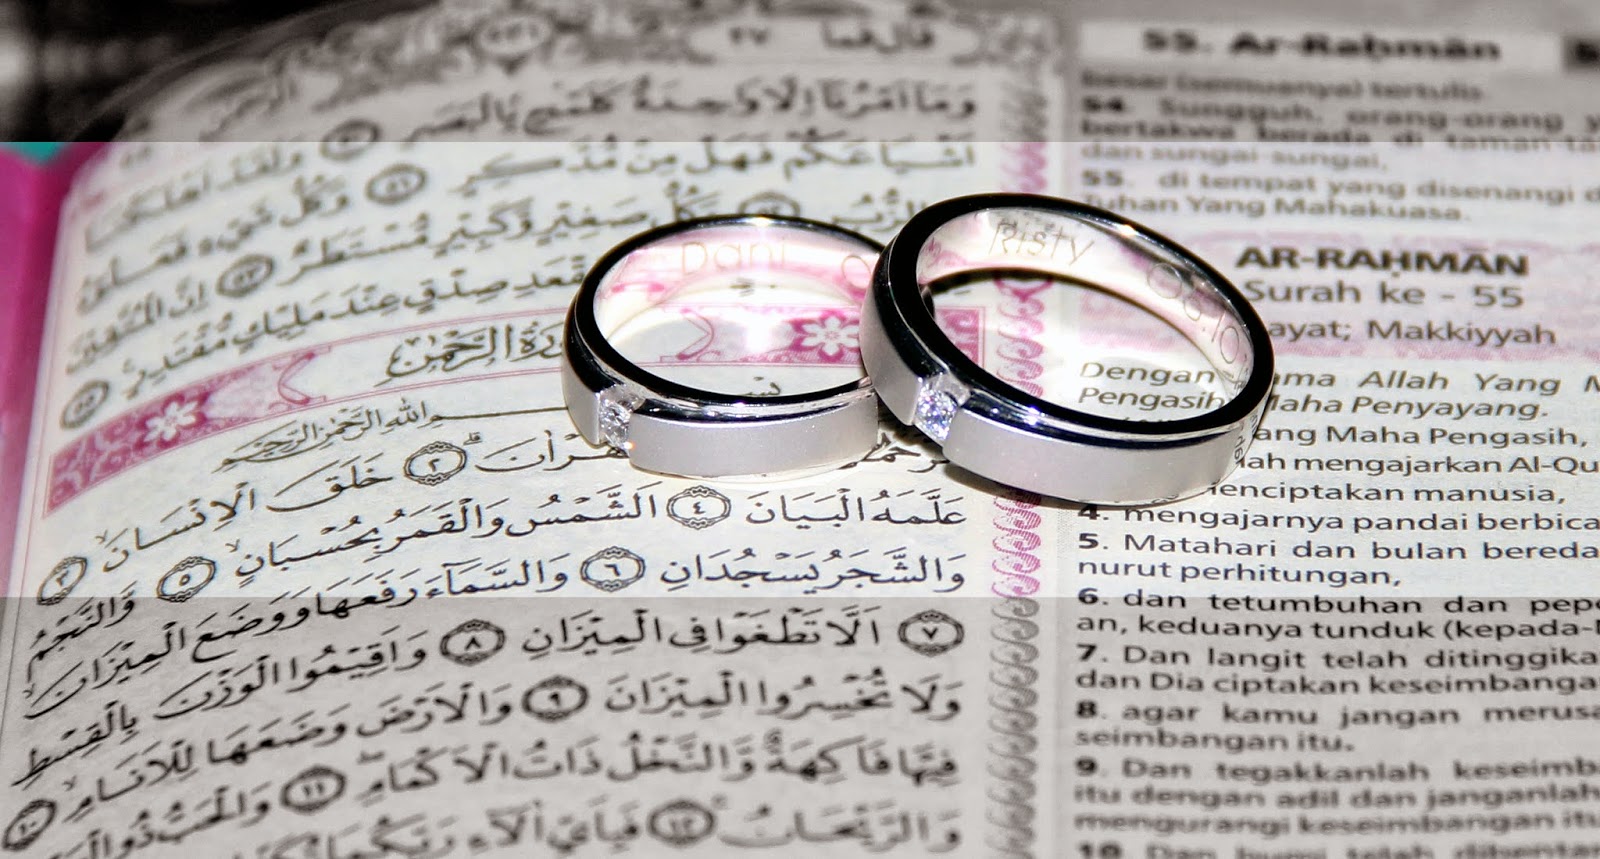 ٢٧
قال فما
وَمَآ أَمْرُنَآ إِلَّا وَاحِدَةٌ كَلَمْحٍ بِالْبَصَرِ ۝٥٠ وَلَقَدْ أَهْلَكْنَا
أَشْيَاعَكُمْ فَهَلْ مِنْ مُّدَّكِرٍ ۝٥١ وَكُلُّ شَيْءٍ فَعَلُوْهُ
الزُّبُرِ ۝٥٢ وَكُلُّ صَغِيْرٍ وَّكَبِيْرٍ مُّسْتَطَرٌ ۝٥٣ اِنَّ الْمُتَّقِيْنَ
مَقْعَدِ صِدْقٍ عِنْدَ مَلِيْكٍ مُّقْتَدِرٍ ۝٥٥
سُوْرَةُ الرَّحْمٰنِ
بِسْمِ اللّٰهِ الرَّحْمٰنِ الرَّحِيْمِ
الْقُرْاٰنَ ۝٢ خَلَقَ الْاِنْسَانَ ۝٣
عَلَّمَهُ الْبَيَانَ ۝٤ اَلشَّمْسُ وَالْقَمَرُ بِحُسْبَانٍ ۝٥ وَّالنَّجْمُ
وَالشَّجَرُ يَسْجُدَانِ ۝٦ وَالسَّمَآءَ رَفَعَهَا وَوَضَعَ الْمِيْزَانَ
۝٧ اَلَّا تَطْغَوْا فِى الْمِيْزَانِ ۝٨ وَاَقِيْمُوا الْوَزْنَ بِالْقِسْطِ
وَلَا تُخْسِرُوا الْمِيْزَانَ ۝٩ وَالْاَرْضَ وَضَعَهَا لِلْاَنَامِ ۝١٠
فِيْهَا فَاكِهَةٌ وَّالنَّخْلُ ذَاتُ الْاَكْمَامِ ۝١١ وَالْحَبُّ ذُو الْعَصْفِ
وَالرَّيْحَانُ ۝١٢ فَبِاَيِّ اٰلَآءِ رَبِّكُمَا
Dani
Risty 08.10
55. Ar-Raḥmān
besar (semuanya) tertulis.
54. Sungguh, orang-orang y
bertakwa berada di taman-ta
dan sungai-sungai,
55. di tempat yang disenangi d
Tuhan Yang Mahakuasa.
AR-RAḤMĀN
Surah ke - 55
ayat; Makkiyyah
Dengan ama Allah Yang M
Pengasih, Maha Penyayang.
ang Maha Pengasih,
lah mengajarkan Al-Qu
enciptakan manusia,
4. mengajarnya pandai berbica
5. Matahari dan bulan bereda
nurut perhitungan,
6. dan tetumbuhan dan pepo
an, keduanya tunduk (kepada-N
7. Dan langit telah ditinggika
dan Dia ciptakan keseimbanga
8. agar kamu jangan merusa
seimbangan itu.
9. Dan tegakkanlah keseimb
itu dengan adil dan janganlah
mengurangi keseimbangan itu
10. Dan bumi telah dibentan